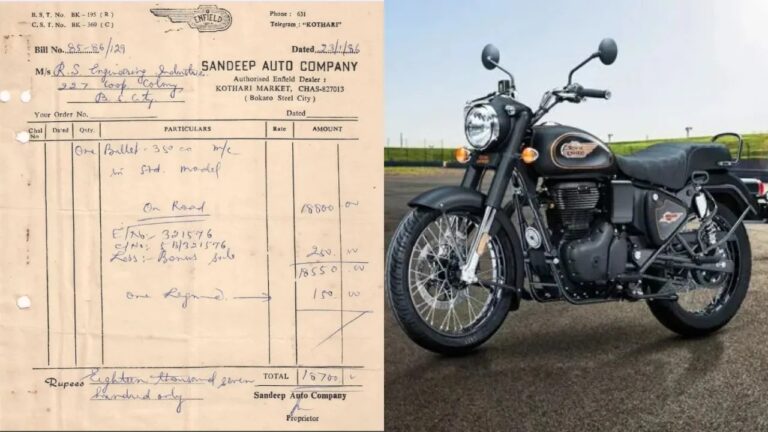 B. S. T. No. BK-195 ( R )
C. S. T. No. BK-360 ( C )
ENFIELD
Phone : 631
Telegram : "KOTHARI"
Bill No. 85-86/129
Dated 23/1/86
M/s R. S. Engineering Industries
227 Coop. Colony
B. S. City
SANDEEP AUTO COMPANY
Authorised Enfield Dealer :
KOTHARI MARKET, CHAS-827013
( Bokaro Steel City )
Your Order No. Dated
Chal No Dated Qnty. PARTICULARS Rate AMOUNT
One Bullet - 350 cc m/c
in Std. model
On Road 18800 00
E/No:- 321576
C/No:- 5 B/321576 250 00
Less:- Bonus
18550 00
One 150 00
TOTAL 18700
Rupees Eighteen thousand seven
hundred only
Sandeep Auto Company
Proprietor